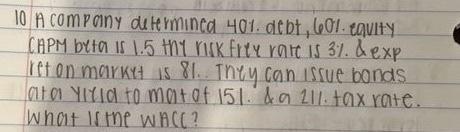 10 A company determined 40%. debt, 60%. equity
CAPM beta is 1.5 the risk free rate is 3%. & exp
ret on market is 8%. They can issue bonds
at a yield to mat of 15%. & a 21%. tax rate.
What is the WACC?